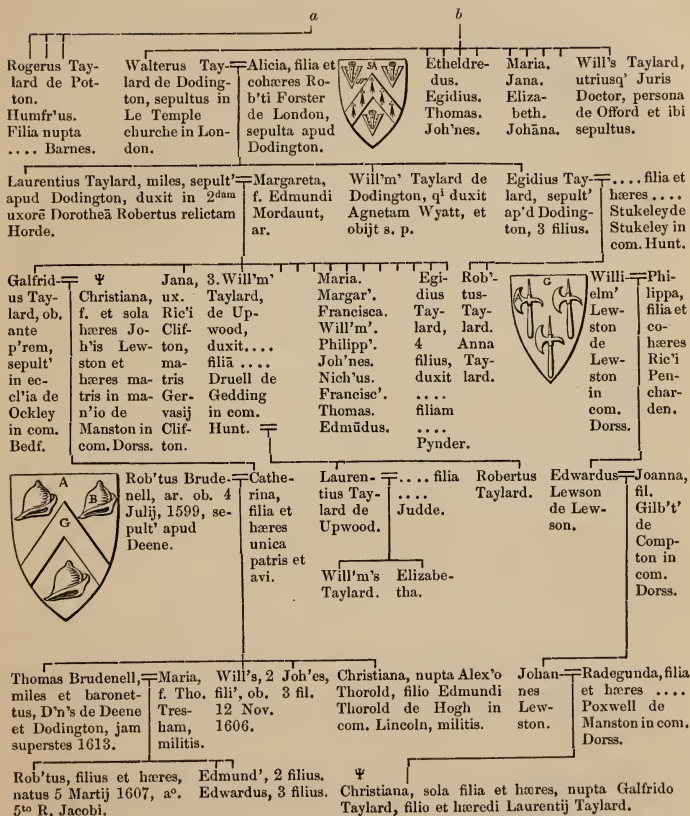 a
b
Rogerus Tay-
lard de Pot-
ton.
Humfr'us.
Filia nupta
.... Barnes.
Walterus Tay-
lard de Doding-
ton, sepultus in
Le Temple
churche in Lon-
don.
Alicia, filia et
cohæres Ro-
b'ti Forster
de London,
sepulta apud
Dodington.
SA
Etheldre-
dus.
Egidius.
Thomas.
Joh'nes.
Maria.
Jana.
Eliza-
beth.
Johāna.
Will's Taylard,
utriusq' Juris
Doctor, persona
de Offord et ibi
sepultus.
Laurentius Taylard, miles, sepult'
apud Dodington, duxit in 2dam
uxorē Dorotheā Robertus relictam
Horde.
Margareta,
f. Edmundi
Mordaunt,
ar.
Will'm' Taylard de
Dodington, qi duxit
Agnetam Wyatt, et
obijt s. p.
Egidius Tay-
lard, sepult'
ap'd Doding-
ton, 3 filius.
.... filia et
hæres ....
Stukeleyde
Stukeley in
com. Hunt.
Galfrid-
us Tay-
lard, ob.
ante
p'rem,
sepult'
in ec-
cl'ia de
Ockley
in com.
Bedf.
Ψ
Christiana,
f. et sola
hæres Jo-
h'is Lew-
ston et
hæres ma-
tris in ma-
n'io de
Manston in
com. Dorss.
Jana,
ux.
Ric'i
Clif-
ton,
ma-
tris
Ger-
vasij
Clif-
ton.
3. Will'm'
Taylard,
de Up-
wood,
duxit....
filiā ....
Druell de
Gedding
in com.
Hunt.
Maria.
Margar'.
Francisca.
Will'm'.
Philipp'.
Joh'nes.
Nich'us.
Francisc'.
Thomas.
Edmūdus.
Egi-
dius
Tay-
lard,
4
filius,
duxit
....
filiam
....
Pynder.
Rob'-
tus-
Tay-
lard.
Anna
Tay-
lard.
G
A
Willi-
elm'
Lew-
ston
de
Lew-
ston
in
com.
Dorss.
Phi-
lippa,
filia et
co-
hæres
Ric'i
Pen-
char-
den.
A
B
G
Rob'tus Brude-
nell, ar. ob. 4
Julij, 1599, se-
pult' apud
Deene.
Cathe-
rina,
filia et
hæres
unica
patris et
avi.
Lauren-
tius Tay-
lard de
Upwood.
.... filia
....
Judde.
Robertus
Taylard.
Edwardus
Lewson
de Lew-
son.
Joanna,
fil.
Gilb't'
de
Comp-
ton in
com.
Dorss.
Will'm's
Taylard.
Elizabe-
tha.
Thomas Brudenell,
miles et baronet-
tus, D'n's de Deene
et Dodington, jam
superstes 1613.
Maria,
f. Tho.
Tres-
ham,
militis.
Will's, 2
fili', ob.
12 Nov.
1606.
Joh'es,
3 fil.
Christiana, nupta Alex'o
Thorold, filio Edmundi
Thorold de Hogh in
com. Lincoln, militis.
Johan-
nes
Lew-
ston.
Radegunda, filia
et hæres ....
Poxwell de
Manston in com.
Dorss.
Rob'tus, filius et hæres,
natus 5 Martij 1607, ao.
5to R. Jacobi.
Edmund', 2 filius.
Edwardus, 3 filius.
Ψ
Christiana, sola filia et hæres, nupta Galfrido
Taylard, filio et hæredi Laurentij Taylard.